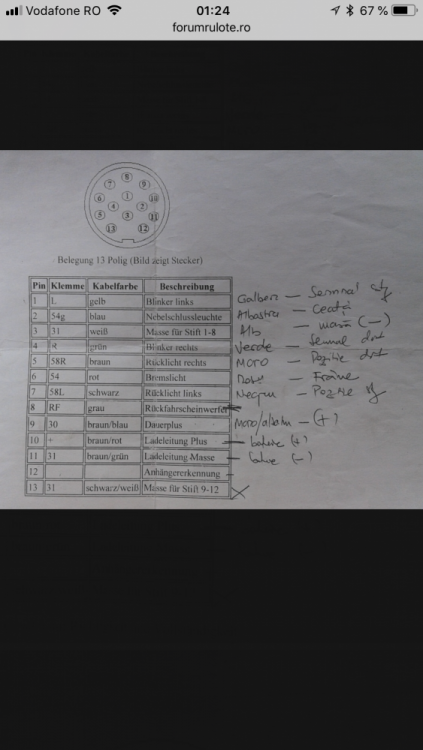 Vodafone RO 01:24 67 %
forumrulote.ro
8
7 9
6 1 10
4 2
5 3 11
13 12
Belegung 13 Polig (Bild zeigt Stecker)
Pin Klemme Kabelfarbe Beschreibung
1 L gelb Blinker links Galben — Semnal
2 54g blau Nebelschlussleuchte Albastru — Ceață
3 31 weiß Masse für Stift 1-8 Alb — masă (-)
4 R grün Blinker rechts Verde —
5 58R braun Rücklicht rechts Maro —
6 54 rot Bremslicht — Frâne
7 58L schwarz Rücklicht links Negru —
8 RF grau Rückfahrscheinwerfer
9 30 braun/blau Dauerplus Maro/albastru — (+)
10 + braun/rot Ladeleitung Plus — (+)
11 31 braun/grün Ladeleitung Masse — (-)
12 Anhängererkennung —
13 31 schwarz/weiß Masse für Stift 9-12 X